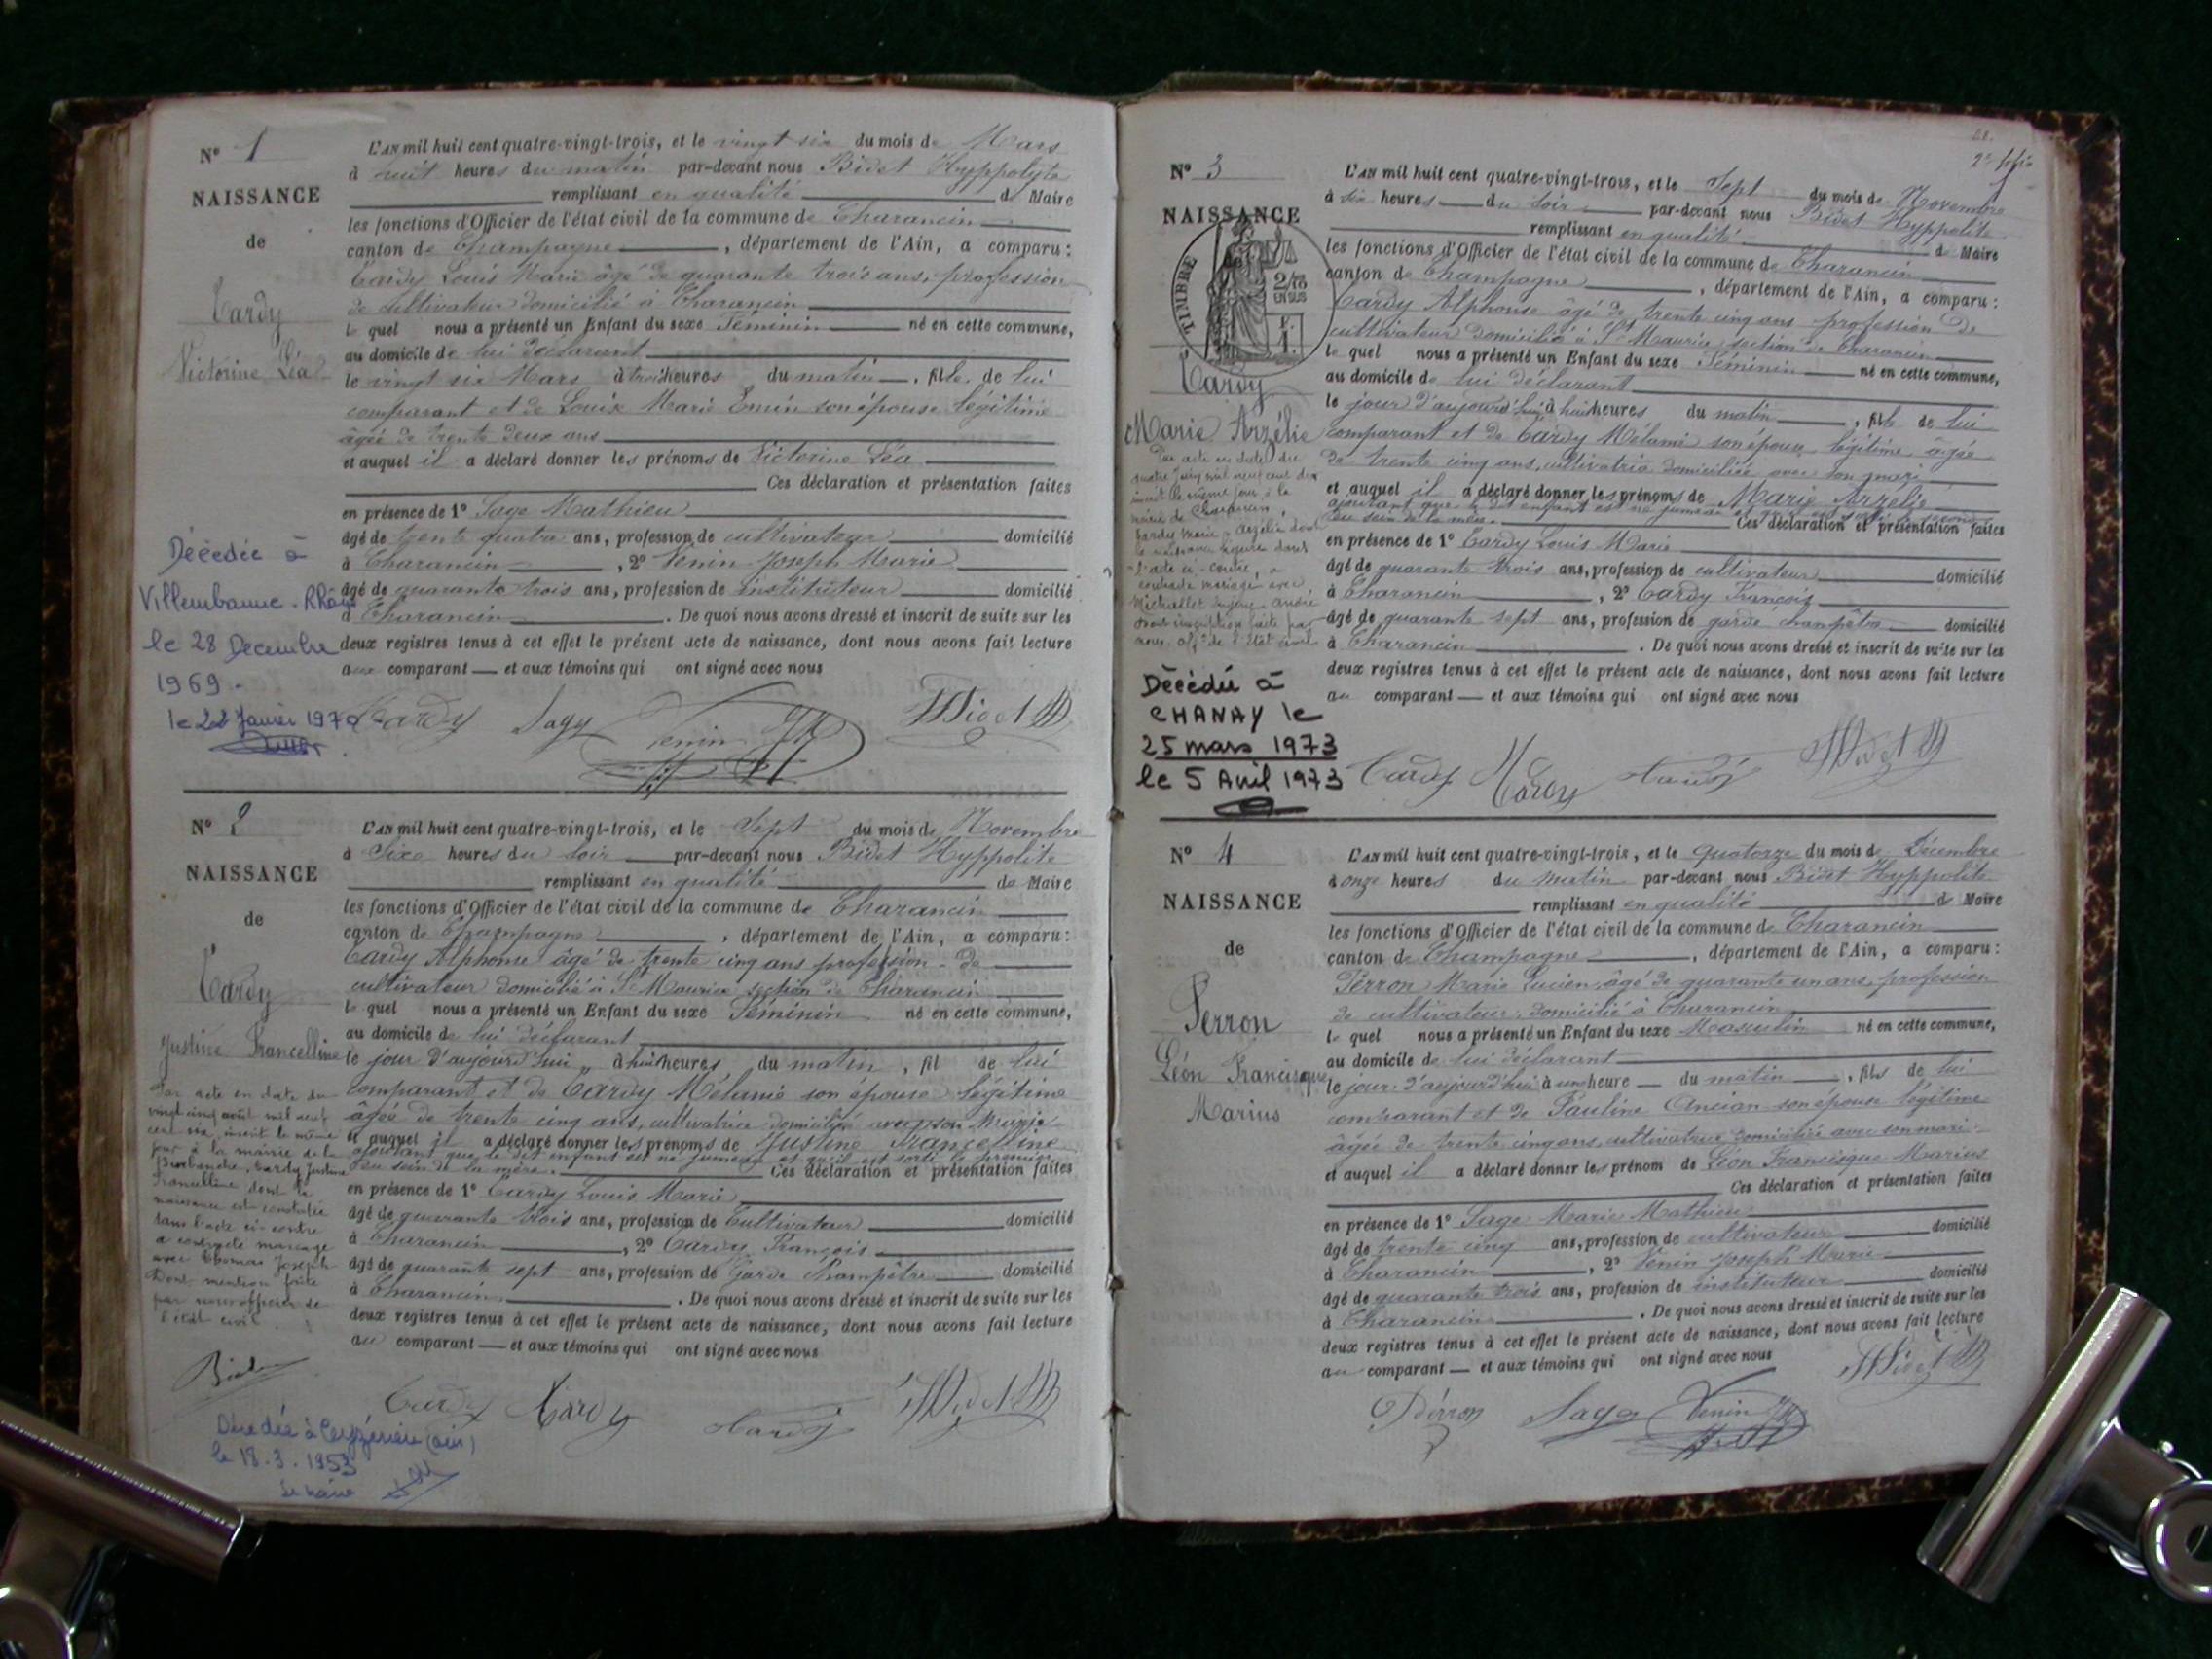 N° 1
NAISSANCE
de
Cardy
Victorine Léa
Décédée à
Villeurbanne - Rhône
le 28 Décembre
1969.
le 22 Janvier 1970
L'AN mil huit cent quatre-vingt-trois, et le vingt six du mois de Mars
à huit heures du matin par-devant nous Bidet Hyppolyte
remplissant en qualité de Maire
les fonctions d'Officier de l'état civil de la commune de Charancin
canton de Champagne, département de l'Ain, a comparu:
Cardy Louis Marie âgé de quarante trois ans, profession
de cultivateur domicilié à Charancin
le quel nous a présenté un Enfant du sexe Féminin né en cette commune,
au domicile de lui déclarant
le vingt six Mars à trois heures du matin, fille de lui
comparant et de Louise Marie Emin son épouse légitime
âgée de trente deux ans
et auquel il a déclaré donner les prénoms de Victorine Léa
Ces déclaration et présentation faites
en présence de 1° Sage Mathieu
âgé de trente quatre ans, profession de cultivateur domicilié
à Charancin, 2° Venin Joseph Marie
âgé de quarante trois ans, profession de instituteur domicilié
à Charancin. De quoi nous avons dressé et inscrit de suite sur les
deux registres tenus à cet effet le présent acte de naissance, dont nous avons fait lecture
aux comparant et aux témoins qui ont signé avec nous
Cardy Sage Venin JM HBidet
N° 2
NAISSANCE
de
Cardy
Justine Francelline
Par acte en date du
vingt cinq août mil neuf
cent six, inscrit le même
jour à la mairie de la
Burbanche, Cardy Justine
Francelline dont la
naissance est constatée
dans l'acte ci-contre
a contracté mariage
avec Thomas Joseph
Dont mention faite
par nous officier de
l'état civil.
L'AN mil huit cent quatre-vingt-trois, et le Sept du mois de Novembre
à Sixe heures du soir par-devant nous Bidet Hyppolite
remplissant en qualité de Maire
les fonctions d'Officier de l'état civil de la commune de Charancin
canton de Champagne, département de l'Ain, a comparu:
Cardy Alphonse âgé de trente cinq ans profession de
cultivateur domicilié à St Maurice section de Charancin
le quel nous a présenté un Enfant du sexe Féminin né en cette commune,
au domicile de lui déclarant
le jour d'aujourd'hui à huit heures du matin, fil de lui
comparant et de Cardy Mélanie son épouse légitime
âgée de trente cinq ans, cultivatrice domiciliée avec son Marie
et auquel il a déclaré donner les prénoms de Justine Francelline
ajoutant que le dit enfant est né jumeau et qu'il est sorti le premier
du sein de la mère. Ces déclaration et présentation faites
en présence de 1° Cardy Louis Marie
âgé de quarante trois ans, profession de Cultivateur domicilié
à Charancin, 2° Cardy François
âgé de quarante sept ans, profession de Garde Champêtre domicilié
à Charancin. De quoi nous avons dressé et inscrit de suite sur les
deux registres tenus à cet effet le présent acte de naissance, dont nous avons fait lecture
au comparant et aux témoins qui ont signé avec nous
Cardy Cardy Cardy HBidet
Décédée à Ceyzérieu (ain)
le 18.3.1953
Le Maire
2e folio
N° 3
NAISSANCE
de
TIMBRE
2/10
EN SUS
Cardy
Marie Arzélie
Par acte en date du
inscrit le même jour à la
mairie de Charancin,
Cardy Marie Arzélie dont
la naissance figure dans
l'acte ci-contre a
contracté mariage avec
Michallet Eugène André
Dont inscription faite par
nous, off. de l'État civil
Décédée à
CHANAY le
25 mars 1973
le 5 Avril 1973
L'AN mil huit cent quatre-vingt-trois, et le Sept du mois de Novembre
à six heures du soir par-devant nous Bidet Hyppolite
remplissant en qualité de Maire
les fonctions d'Officier de l'état civil de la commune de Charancin
canton de Champagne, département de l'Ain, a comparu:
Cardy Alphonse âgé de trente cinq ans profession de
cultivateur domicilié à St Maurice section de Charancin
le quel nous a présenté un Enfant du sexe Féminin né en cette commune,
au domicile de lui déclarant
le jour d'aujourd'hui à huit heures du matin, fille de lui
comparant et de Cardy Mélanie son épouse légitime âgée
de trente cinq ans, cultivatrice domiciliée avec son mari
et auquel il a déclaré donner les prénoms de Marie Arzélie
ajoutant que le dit enfant est né jumeau et qu'il est sorti le second
du sein de la mère. Ces déclaration et présentation faites
en présence de 1° Cardy Louis Marie
âgé de quarante trois ans, profession de cultivateur domicilié
à Charancin, 2° Cardy François
âgé de quarante sept ans, profession de garde champêtre domicilié
à Charancin. De quoi nous avons dressé et inscrit de suite sur les
deux registres tenus à cet effet le présent acte de naissance, dont nous avons fait lecture
au comparant et aux témoins qui ont signé avec nous
Cardy Cardy Cardy HBidet
N° 4
NAISSANCE
de
Perron
Léon Francisque
Marius
L'AN mil huit cent quatre-vingt-trois, et le quatorze du mois de Décembre
à onze heures du matin par-devant nous Bidet Hyppolite
remplissant en qualité de Maire
les fonctions d'Officier de l'état civil de la commune de Charancin
canton de Champagne, département de l'Ain, a comparu:
Perron Marie Lucien âgé de quarante un ans, profession
de cultivateur domicilié à Charancin
le quel nous a présenté un Enfant du sexe Masculin né en cette commune,
au domicile de lui déclarant
le jour d'aujourd'hui à une heure du matin, fils de lui
comparant et de Pauline Ancian son épouse légitime
âgée de trente cinq ans, cultivatrice domiciliée avec son mari
et auquel il a déclaré donner les prénom de Léon Francisque Marius
Ces déclaration et présentation faites
en présence de 1° Sage Marie Mathieu
âgé de trente cinq ans, profession de cultivateur domicilié
à Charancin, 2° Venin Joseph Marie
âgé de quarante trois ans, profession de instituteur domicilié
à Charancin. De quoi nous avons dressé et inscrit de suite sur les
deux registres tenus à cet effet le présent acte de naissance, dont nous avons fait lecture
au comparant et aux témoins qui ont signé avec nous
Pérron Sage Venin JM HBidet